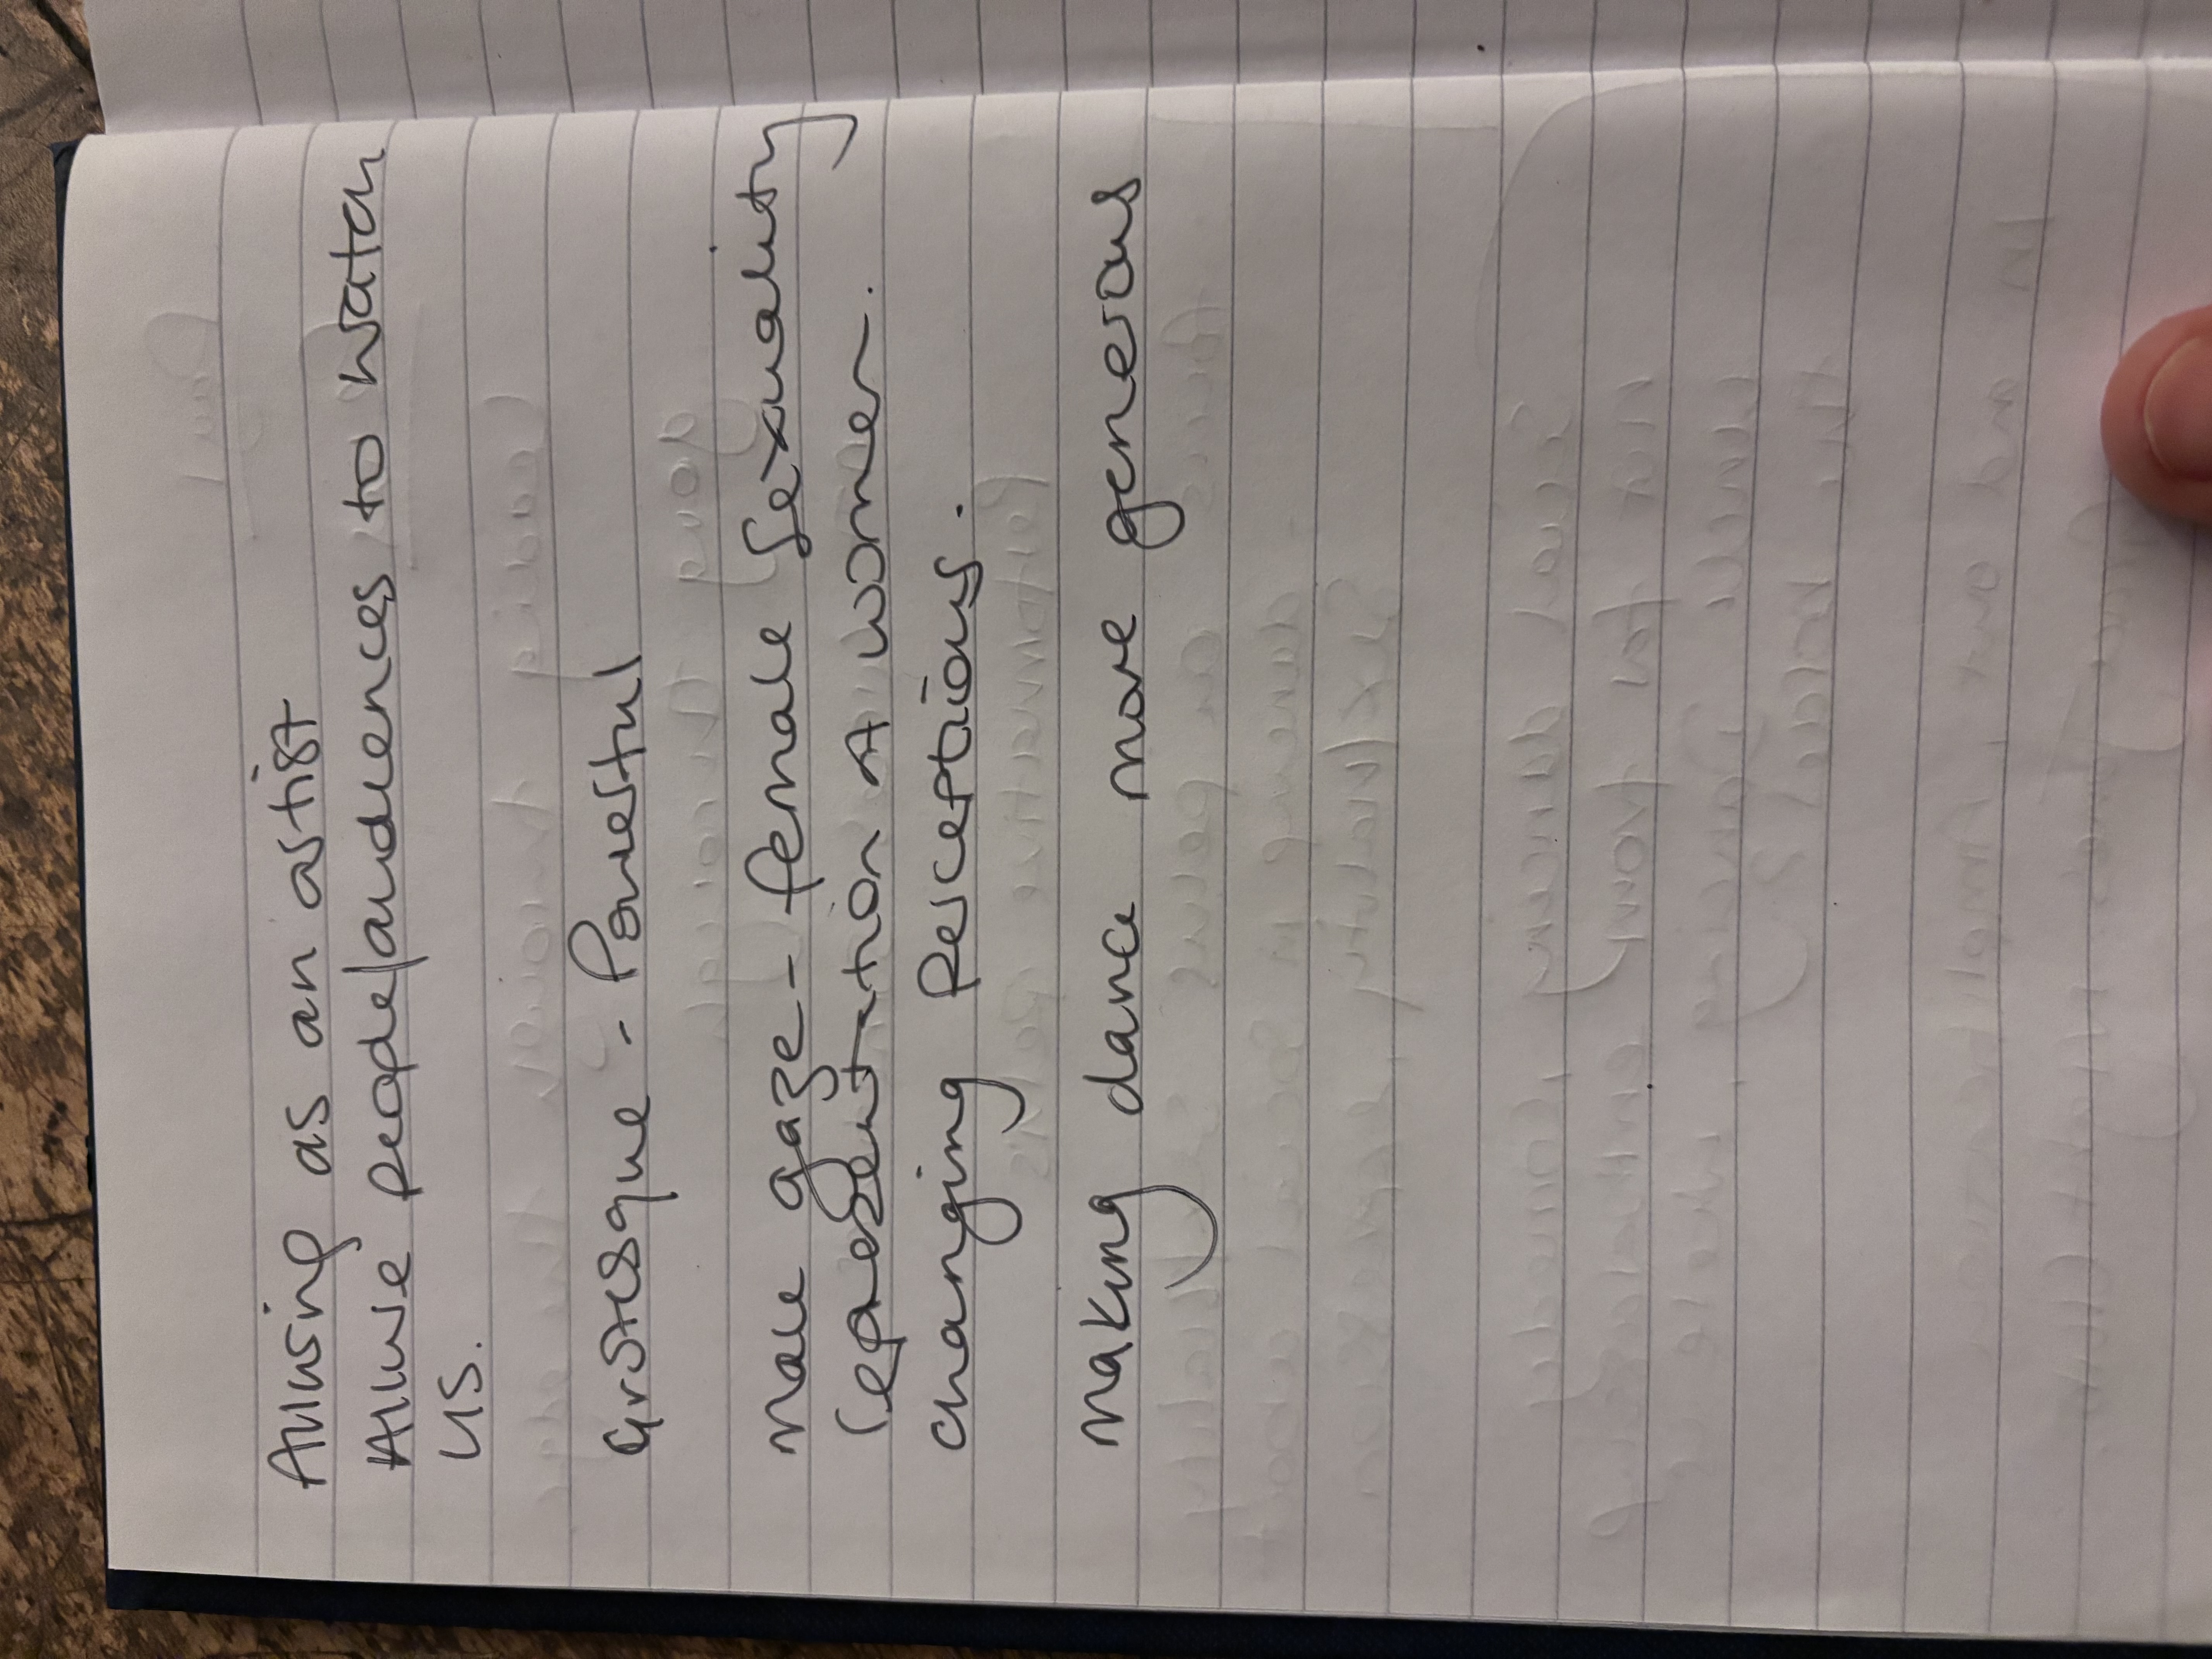 Alluring as an artist
Allure people/audiences to watch
us.
Grotesque - Powerful
male gaze - female sexuality
representation of women.
changing perceptions.
making dance more generous